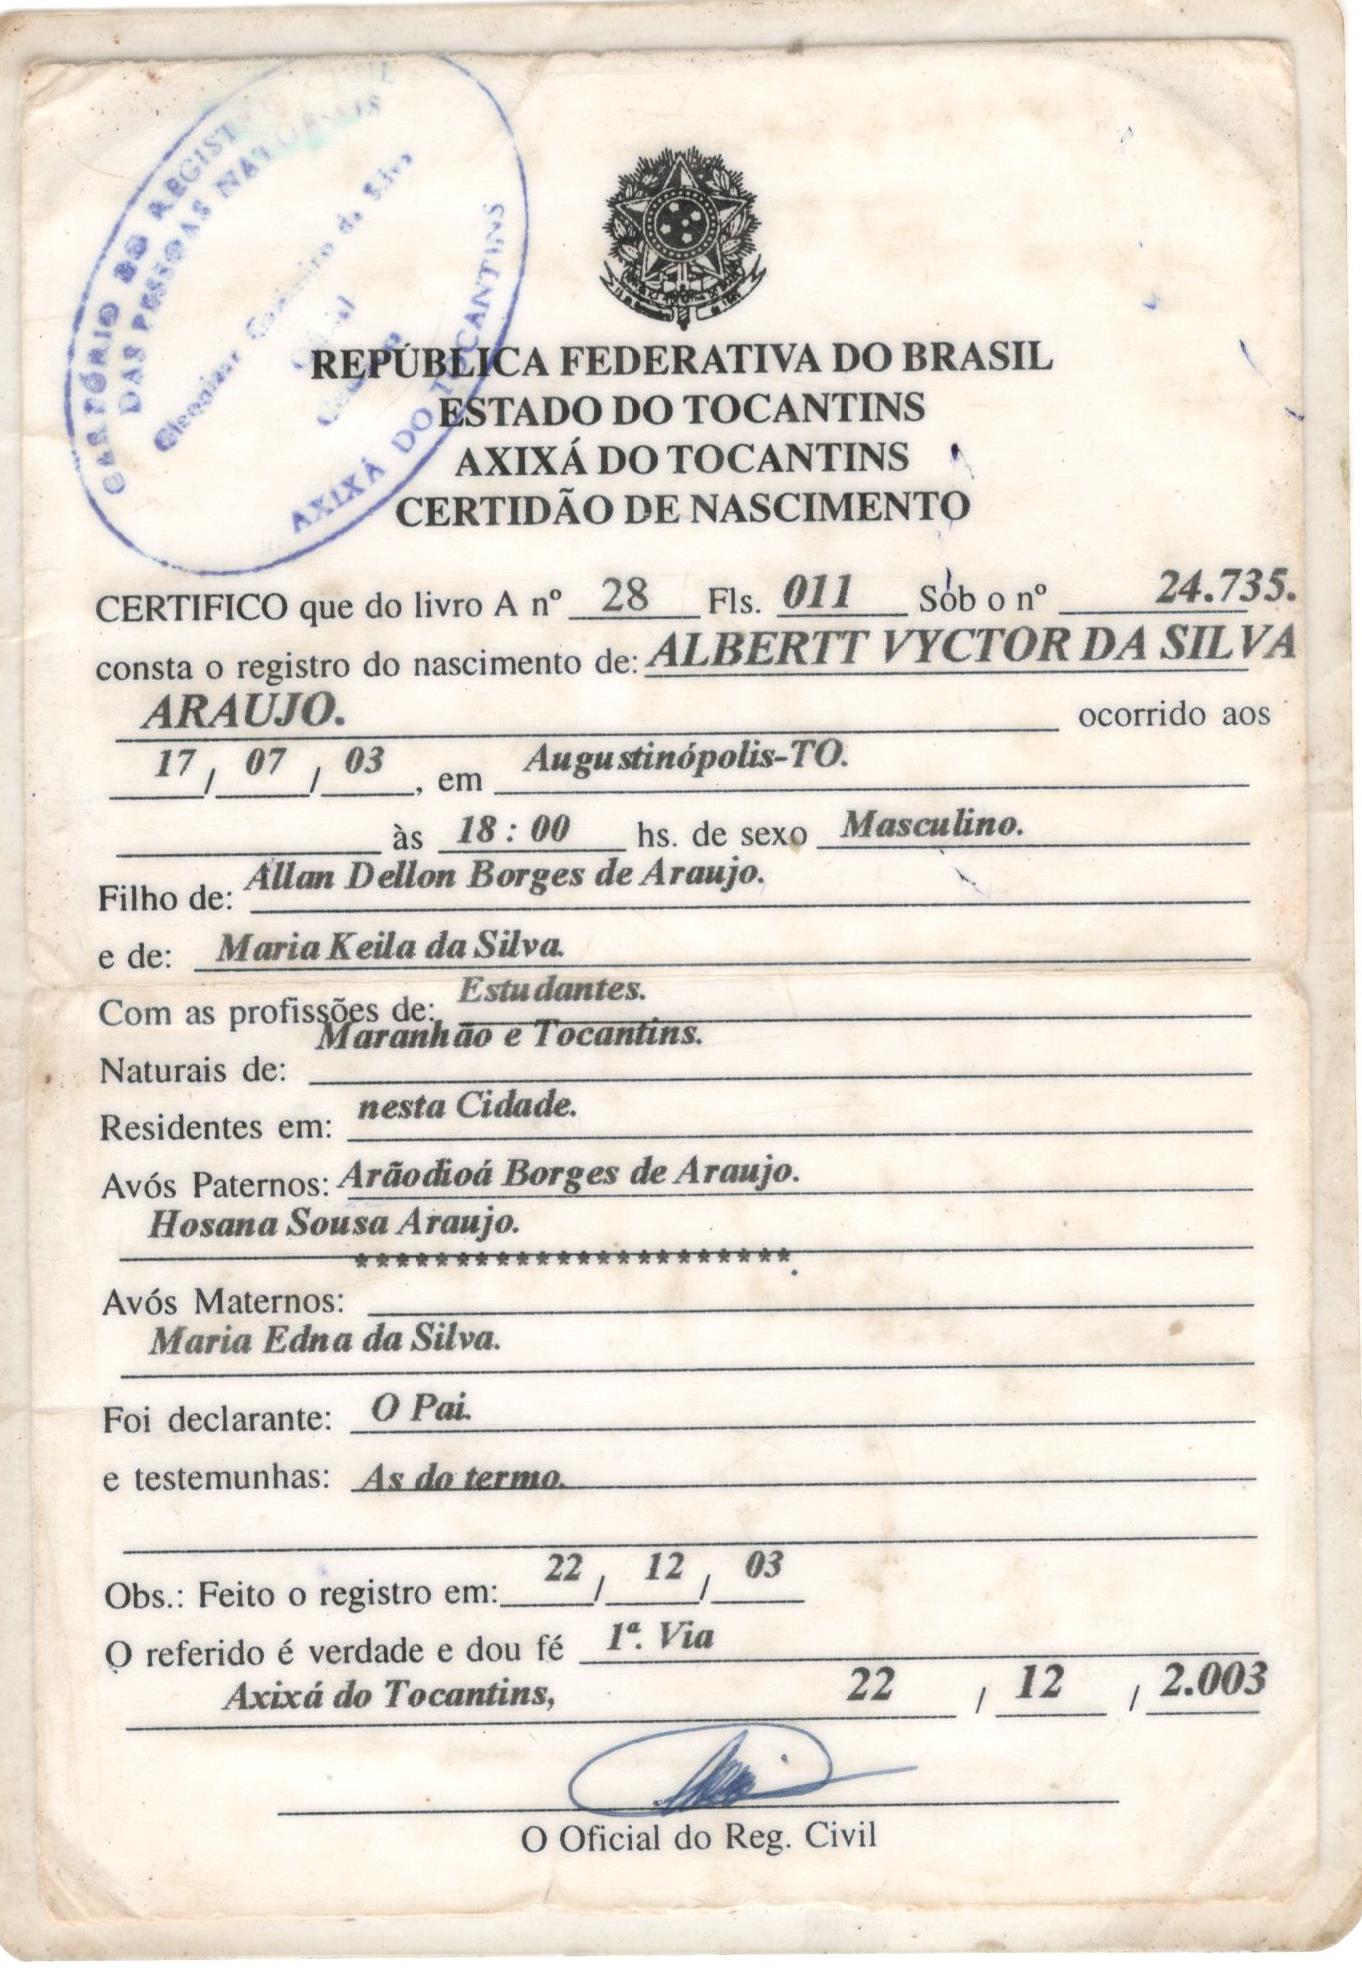 CARTÓRIO DO REGISTRO CIVIL
DAS PESSOAS NATURAIS
AXIXÁ DO TOCANTINS
REPÚBLICA FEDERATIVA DO BRASIL
ESTADO DO TOCANTINS
AXIXÁ DO TOCANTINS
CERTIDÃO DE NASCIMENTO
CERTIFICO que do livro A nº 28 Fls. 011 Sob o nº 24.735.
consta o registro do nascimento de: ALBERTT VYCTOR DA SILVA
ARAUJO. ocorrido aos
17 / 07 / 03, em Augustinópolis-TO.
às 18:00 hs. de sexo Masculino.
Filho de: Allan Dellon Borges de Araujo.
e de: Maria Keila da Silva.
Com as profissões de: Estudantes.
Naturais de: Maranhão e Tocantins.
Residentes em: nesta Cidade.
Avós Paternos: Arãodioá Borges de Araujo.
Hosana Sousa Araujo.
**********************.
Avós Maternos:
Maria Edna da Silva.
Foi declarante: O Pai.
e testemunhas: As do termo.
Obs.: Feito o registro em: 22 / 12 / 03
O referido é verdade e dou fé 1ª. Via
Axixá do Tocantins, 22 / 12 / 2.003
O Oficial do Reg. Civil